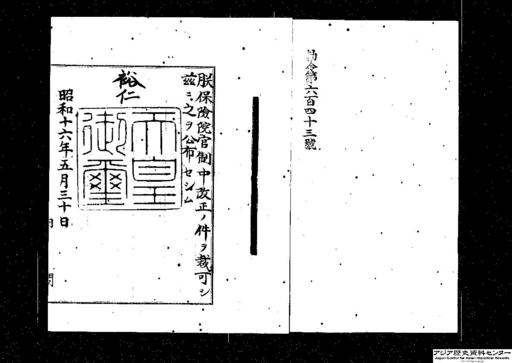 勅令第六百四十三號
朕保險院官制中改正ノ件ヲ裁可シ
茲ニ之ヲ公布セシム
裕仁
天皇御璽
昭和十六年五月三十日
内閣
アジア歴史資料センター
Japan Center for Asian Historical Records